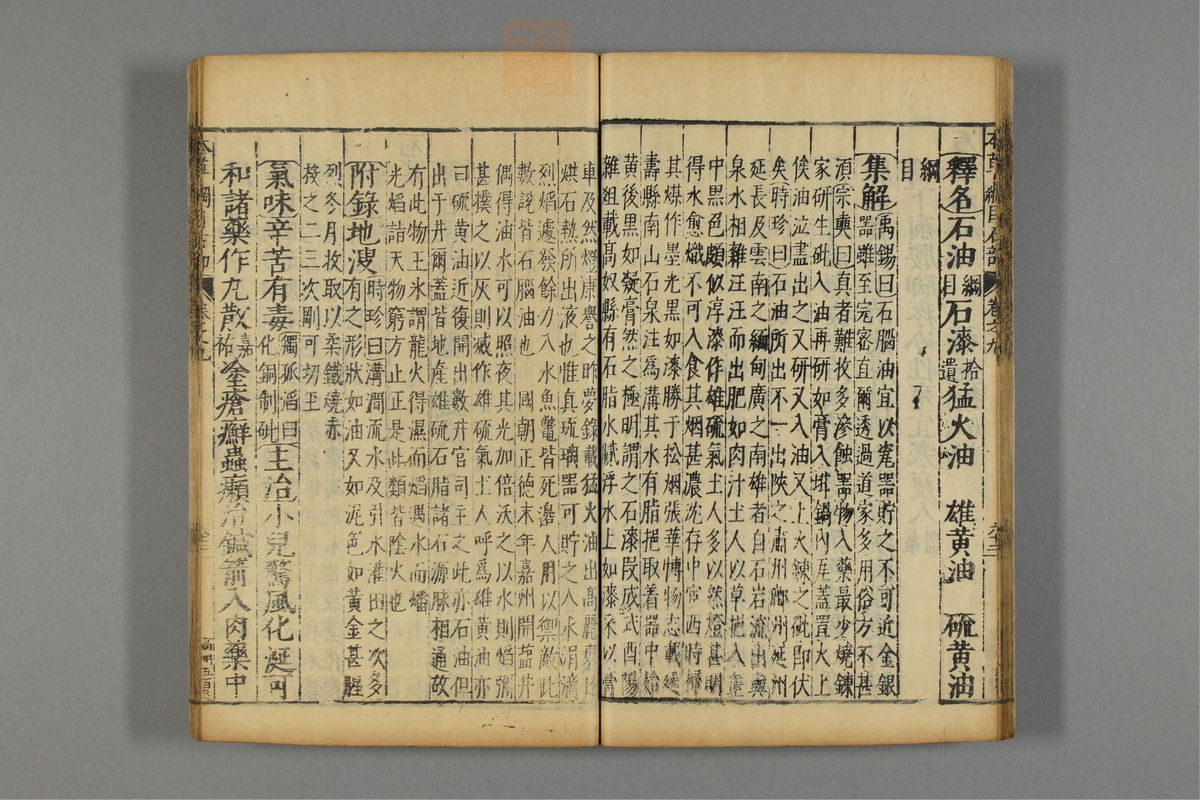 釋名石油綱目石漆拾遺猛火油 雄黃油 硫黃油
綱目
集解禹錫曰石腦油宜以瓷器貯之不可近金銀
器雖至完密直爾透過道家多用俗方不甚
須宗奭曰真者難收多滲蝕器物入藥最少燒鍊
家研生砒入油再研如膏入坩鍋內瓦蓋置火上
俟油泣盡出之又研又入油又上火鍊之砒即伏
矣時珍曰石油所出不一出陝之肅州鄜州延州
延長及雲南之緬甸廣之南雄者自石岩流出與
泉水相雜汪汪而出肥如肉汁土人以草挹入缶
中黑色頗似淳漆作雄硫氣土人多以然燈甚明
得水愈熾不可入食其烟甚濃沈存中宦西時掃
其煤作墨光黑如漆勝于松烟張華博物志載延
壽縣南山石泉注為溝其水有脂挹取着器中始
黃後黑如凝膏然之極明謂之石漆段成式酉陽
雜俎載高奴縣有石脂水膩浮水上如漆采以膏
車及然燈康譽之昨夢錄載猛火油出高麗東
烘石熱所出液也惟真琉璃器可貯之入水涓滴
烈焰遽發餘力入水魚鱉皆死邊人用以禦敵此
數說皆石腦油也 國朝正德末年嘉州開鹽井
偶得油水可以照夜其光加倍沃之以水則焰彌
甚撲之以灰則滅作雄硫氣土人呼為雄黃油亦
曰硫黃油近復開出數井官司主之此亦石油但
出于井爾蓋皆地產雄硫石脂諸石源脉相通故
有此物王氷謂龍火得濕而焰遇水而燔
光焰詣天物窮方止正是此類皆陰火也
附錄地溲時珍曰溝澗流水及引水灌田之次多
有之形狀如油又如泥色如黃金甚腥
烈冬月收取以柔鐵燒赤
投之二三次剛可切玉
氣味辛苦有毒獨孤滔曰化銅制砒主治小兒驚風化涎可
和諸藥作丸散嘉祐塗瘡癬蟲癩治鍼箭入肉藥中